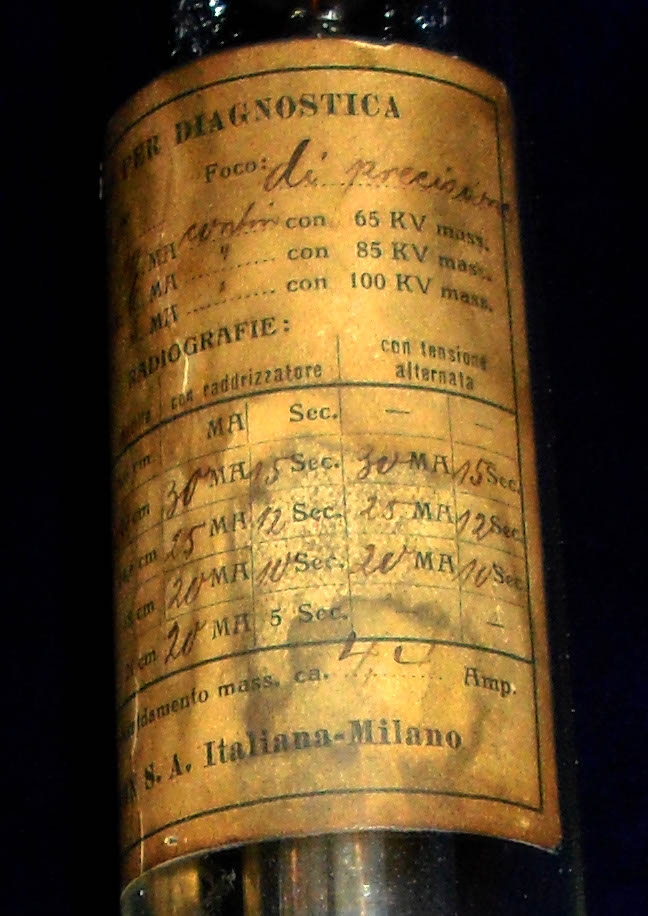 PER DIAGNOSTICA
Foco: di precisione
MA contin con 65 KV mass.
MA " con 85 KV mass.
MA " con 100 KV mass.
RADIOGRAFIE:
con raddrizzatore con tensione alternata
cm MA Sec. — —
cm 30 MA 15 Sec. 30 MA 15 Sec.
cm 25 MA 12 Sec. 25 MA 12 Sec.
cm 20 MA 10 Sec. 20 MA 10 Sec.
cm 20 MA 5 Sec. —
mass. ca. Amp.
S. A. Italiana-Milano